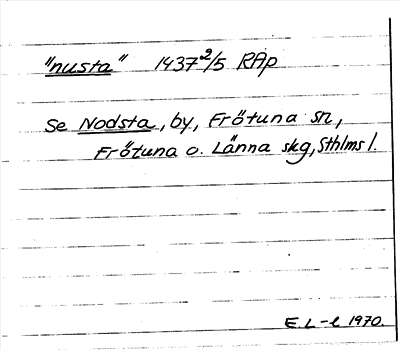 "nusta" 1437 2/5 RAp
Se Nodsta, by, Frötuna sn,
Frötuna o. Länna skg, Sthlms l.
E. L-l 1970.